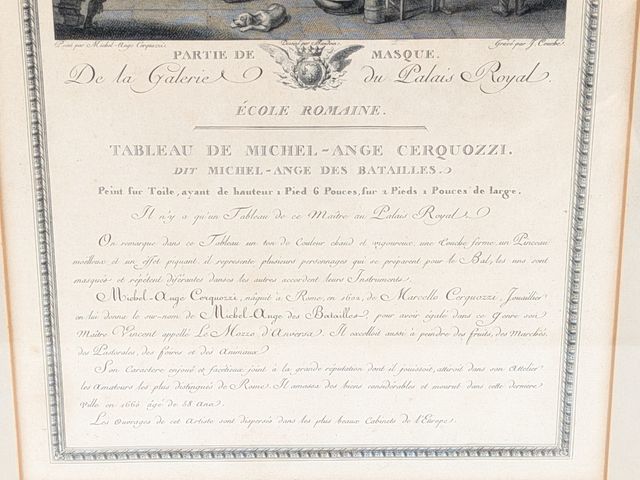 Peint par Michel-Ange Cerquozzi. Dessiné par Gravé par J. Couché.
PARTIE DE MASQUE.
De la Galerie du Palais Royal.
ÉCOLE ROMAINE.
TABLEAU DE MICHEL-ANGE CERQUOZZI.
DIT MICHEL-ANGE DES BATAILLES.
Peint sur Toile, ayant de hauteur 1 Pied 6 Pouces, sur 2 Pieds 1 Pouces de large.
Il n'y a qu'un Tableau de ce Maître au Palais Royal.
On remarque dans ce Tableau un ton de Couleur chaud et vigoureux, une touche ferme, un Pinceau
moëlleux et un effet piquant, il represente plusieurs personnages qui se preparent pour le Bal, les uns sont
masqués et répétent diférantes danses les autres accordent leurs Instruments.
Michel-Ange Cerquozzi, nâquit à Rome, en 1602, de Marcello Cerquozzi, Jouaillier
on lui donna le sur-nom de Michel-Ange des Batailles, pour avoir égalé dans ce genre son
Maître Vincent appellé Le Mozzo d'Anversa. Il excelloit aussi à peindre des fruits, des Marchés,
des Pastorales, des foires et des Animaux.
Son Caractere enjoué et facétieux joint à la grande réputation dont il jouissoit, attiroit dans son Attelier
les Amateurs les plus distingués de Rome. Il amassa des biens considérables et mourut dans cette derniere
Ville en 1660 âgé de 58 Ans.
Les Ouvrages de cet Artiste sont dispersés dans les plus beaux Cabinets de l'Europe.